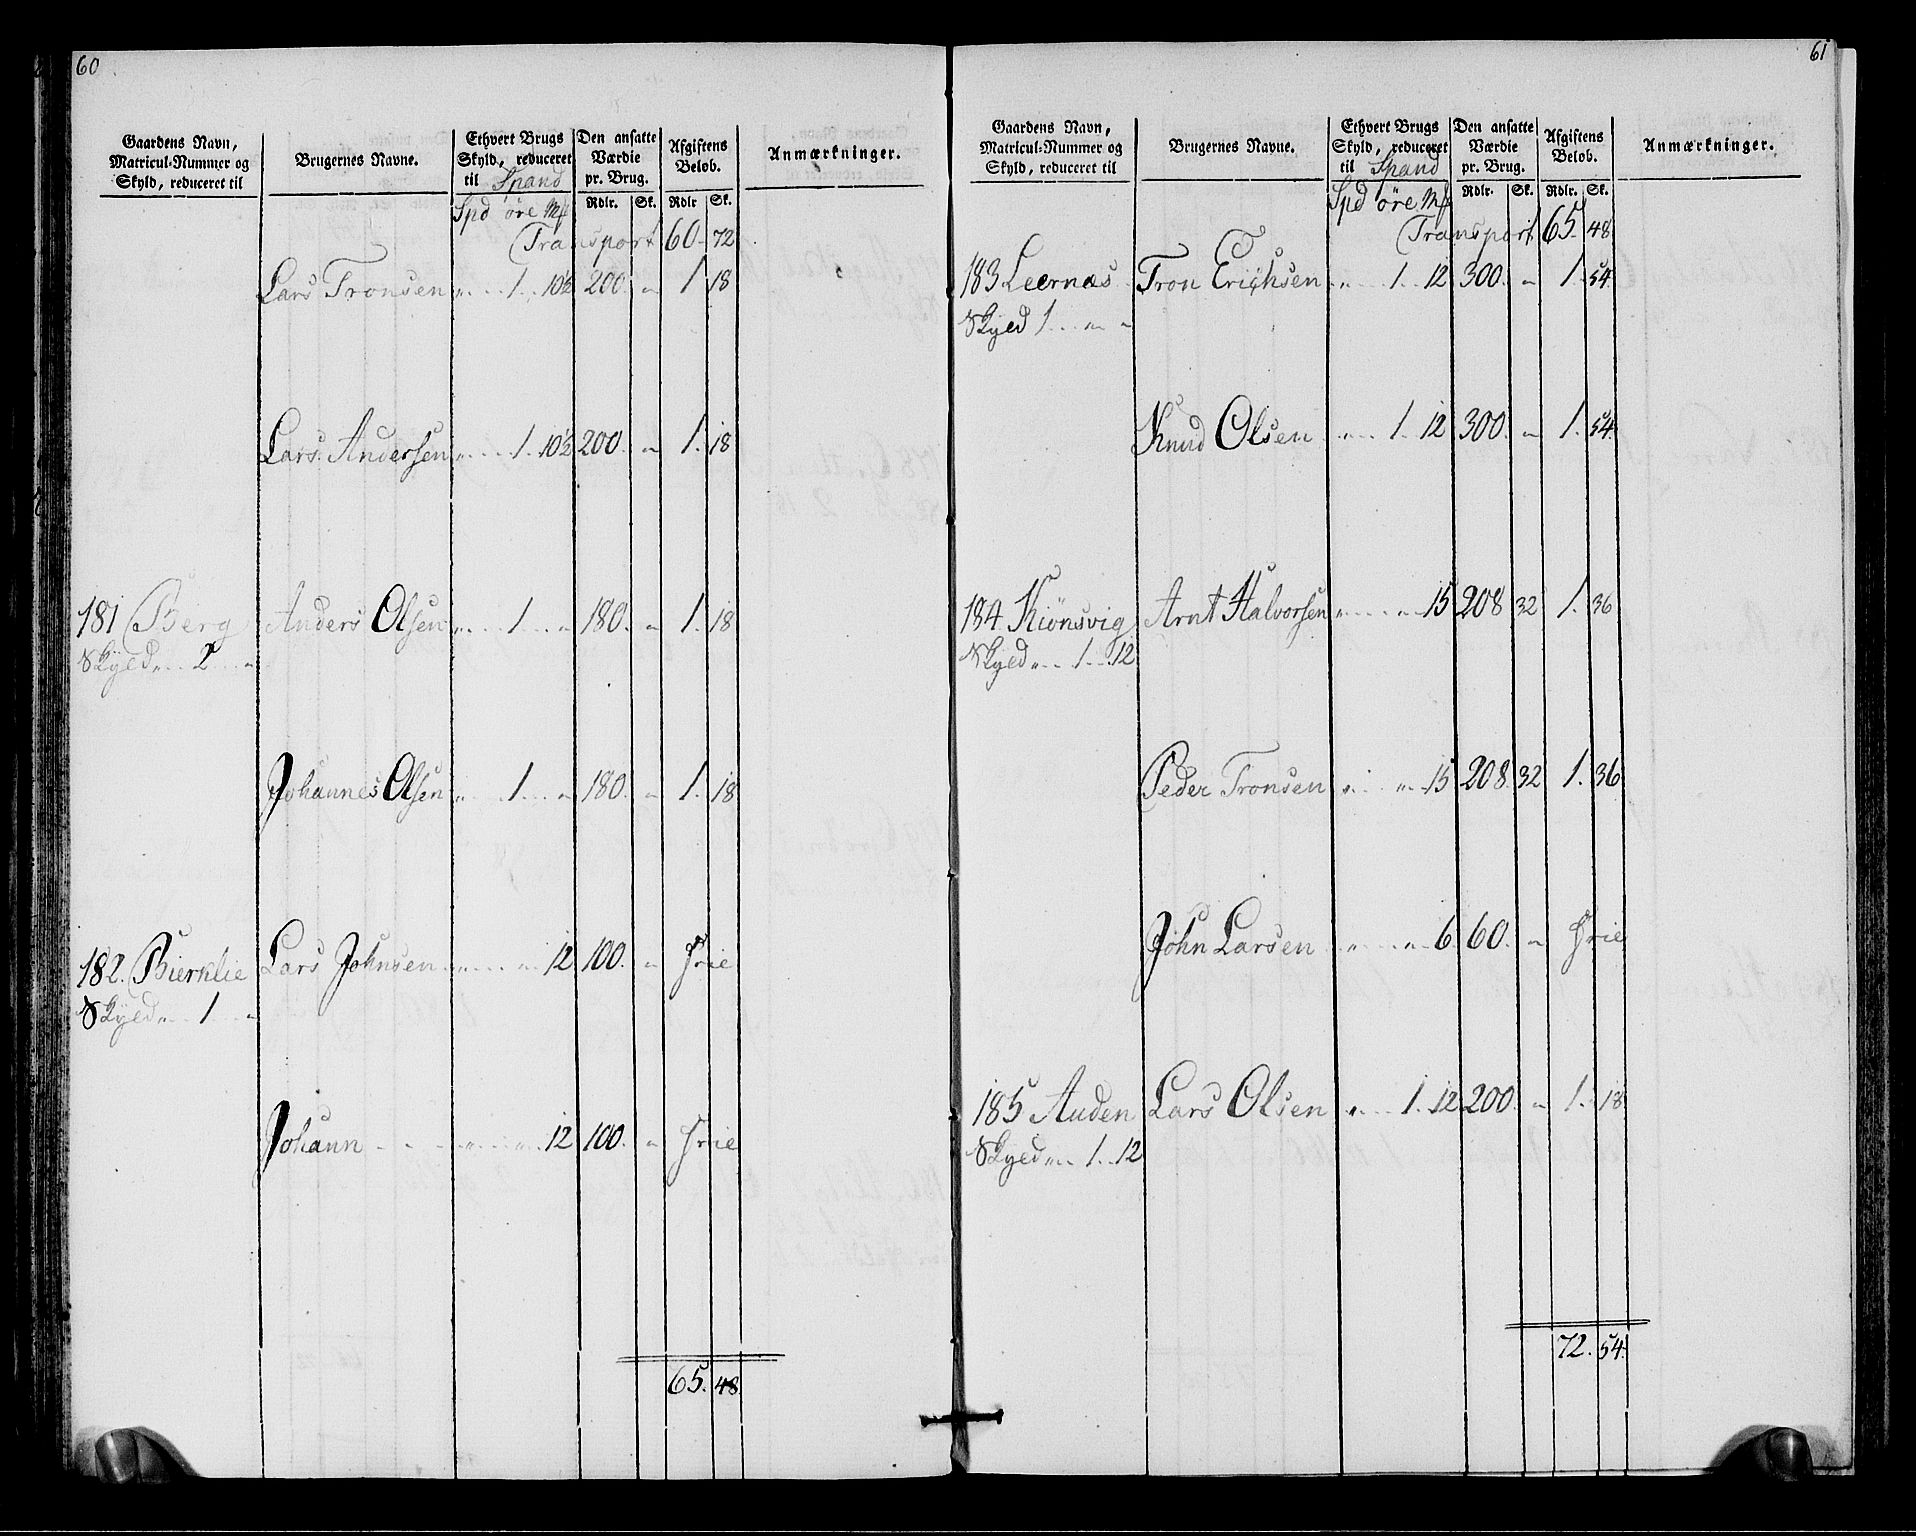 60
Gaardens Navn, Matricul-Nummer og Skyld, reduceret til
Brugernes Navne.
Ethvert Brugs Skyld, reduceret til Spand
Den ansatte Værdie pr. Brug.
Afgiftens Beløb.
Anmærkninger.
Spd öre Mk Rdlr. Sk. Rdlr Sk.
Transport 60 72
Lars Tronsen " 1 10½ 200 " 1 18
Lars Andersen " 1 10½ 200 " 1 18
181 Berg Anders Olsen " 1 " 180 " 1 18
Skyld " 2 "
Johannes Olsen " 1 " 180 " 1 18
182. Bierklie Lars Johnsen " " 12 100 " frie
Skyld " 1 "
Johann " " 12 100 " frie
65. 48
61
Gaardens Navn, Matricul-Nummer og Skyld, reduceret til
Brugernes Navne.
Ethvert Brugs Skyld, reduceret til Spand
Den ansatte Værdie pr. Brug.
Afgiftens Beløb.
Anmærkninger.
Spd öre Mk Rdlr. Sk. Rdlr. Sk.
Transport 65 48
183 Leernæs Tron Erichsen " 1 12 300 " 1 54
Skyld 1 " "
Knud Olsen " 1 12 300 " 1 54
184 Kiönsvig Arnt Halvorsen " " 15 208 32 1 36
Skyld " 1 12
Peder Tronsen " " 15 208 32 1 36
John Larsen " " 6 60 " frie
185 Auden Lars Olsen " 1 12 200 " 1 18
Skyld " 1 12
72. 54